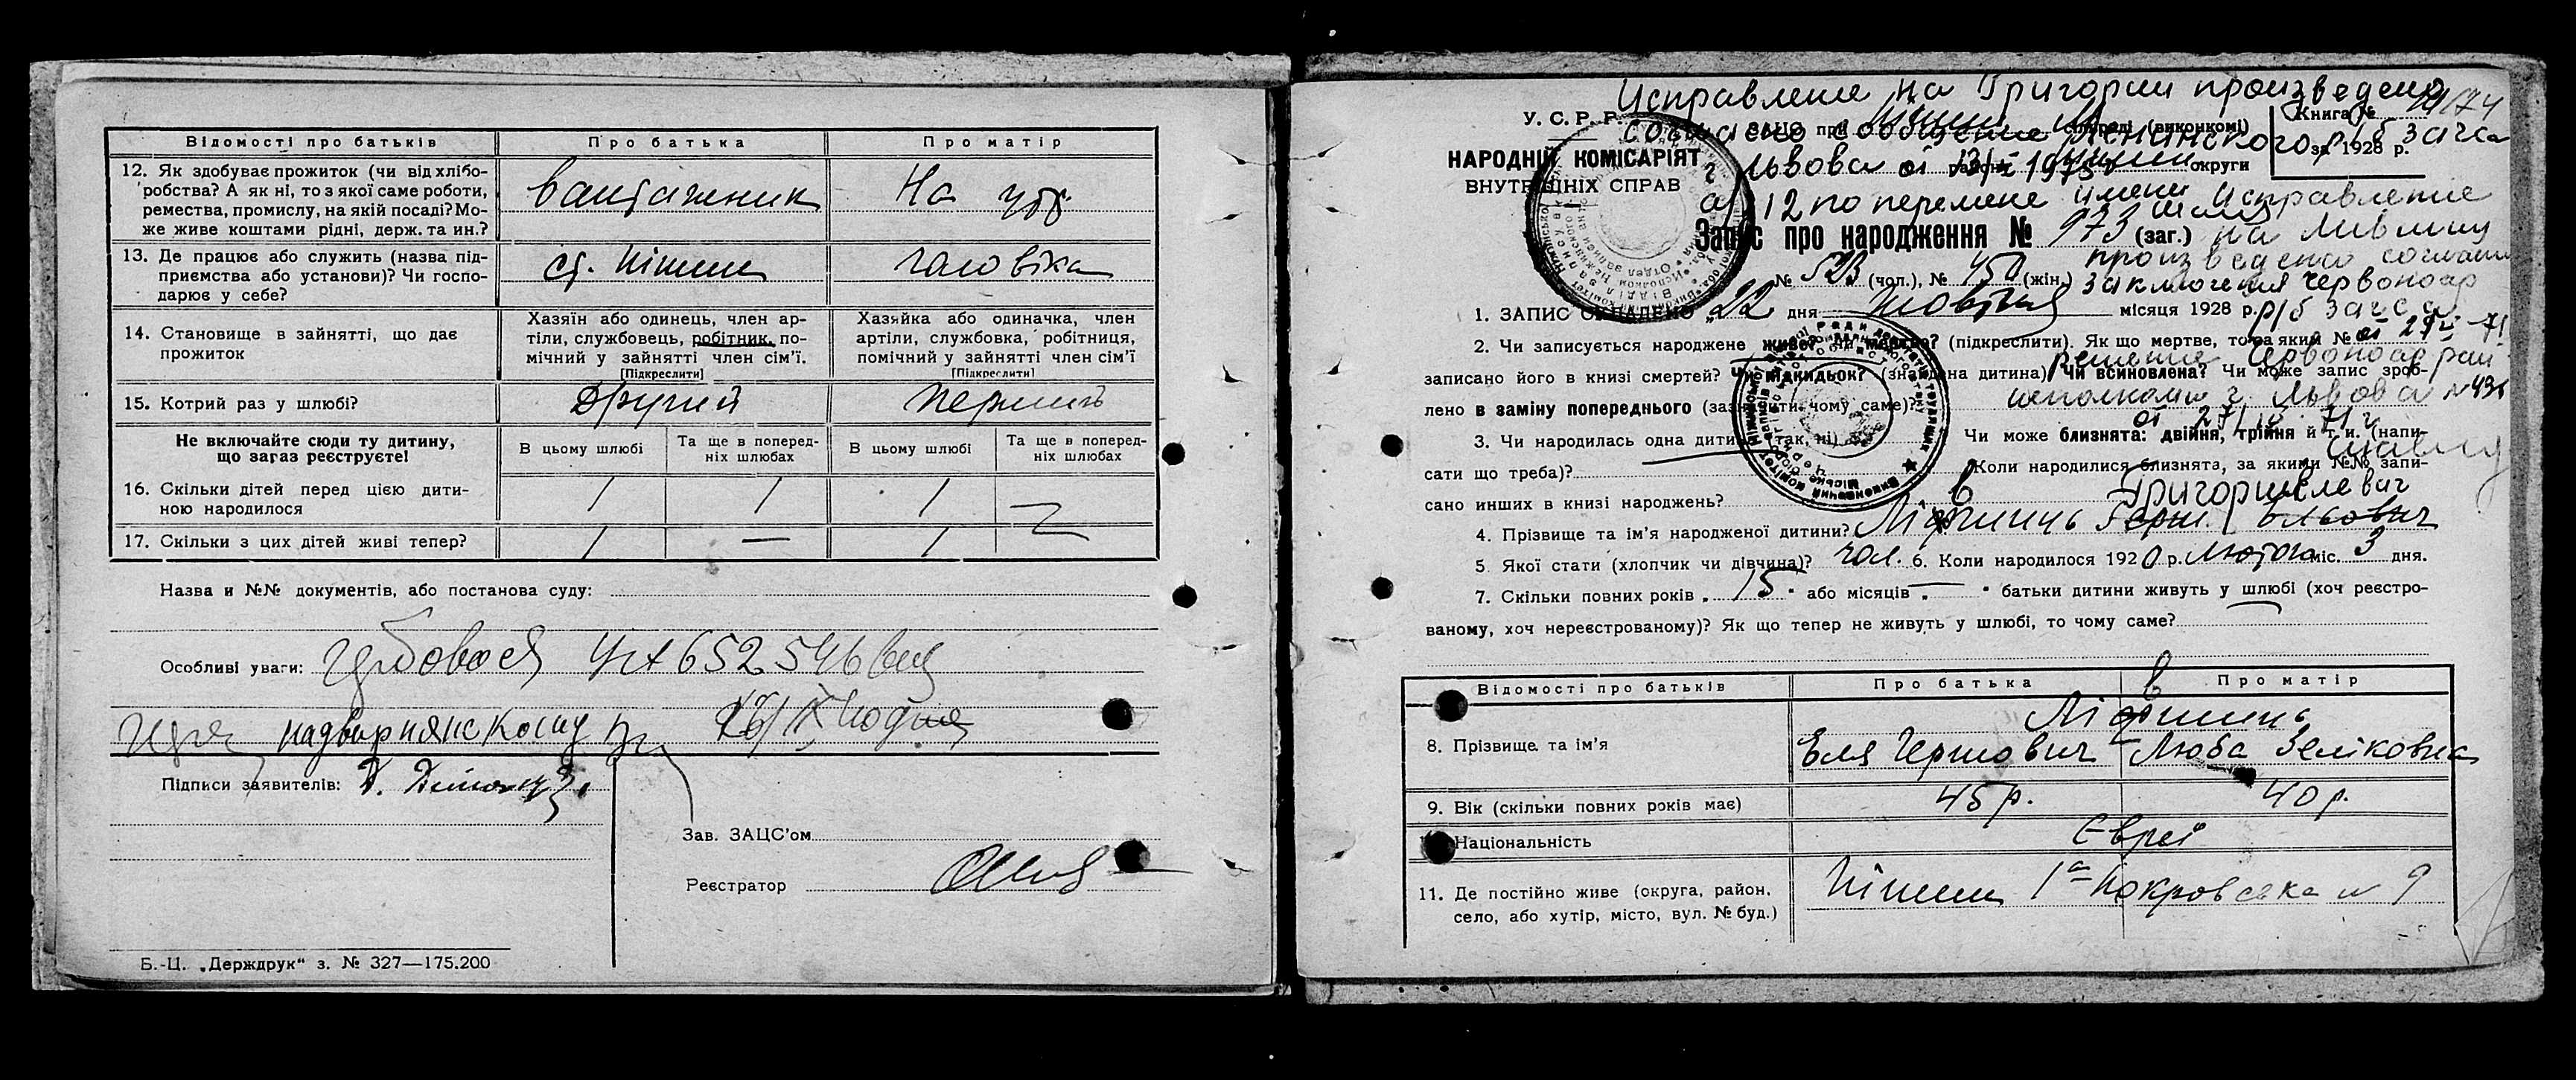 Відомості про батьків
Про батька
Про матір
12. Як здобуває прожиток (чи від хлібо-
робства? А як ні, то з якої саме роботи,
ремества, промислу, на якій посаді? Мо-
же живе коштами рідні, держ. та ин.?
вантажник
На утр.
13. Де працює або служить (назва під-
приємства або установи)? Чи госпо-
дарює у себе?
ст. Ніжин
чоловіка
14. Становище в зайнятті, що дає
прожиток
Хазяїн або одинець, член ар-
тіли, службовець, робітник, по-
мічний у зайнятті член сім'ї.
[Підкреслити]
Хазяйка або одиначка, член
артіли, службовка, робітниця,
помічний у зайнятті член сім'ї
[Підкреслити]
15. Котрий раз у шлюбі?
Другий
Перший
Не включайте сюди ту дитину,
що загаз реєструєте!
В цьому шлюбі
Та ще в поперед-
ніх шлюбах
В цьому шлюбі
Та ще в поперед-
ніх шлюбах
16. Скільки дітей перед цією дити-
ною народилося
1 1 1 —
17. Скільки з цих дітей живі тепер?
1 — 1 —
Назва и №№ документів, або постанова суду:
Особливі уваги: 652546
надвирнянскому
Підписи заявителів:
Зав. ЗАЦС'ом
Реєстратор
Б.-Ц. „Держдрук“ з. № 327—175.200
Исправление на Григорий произведено
У. С. Р. Р.
согласно сообщения Ленинского р/б загса
Книга №
за 1928 р.
НАРОДНІЙ КОМІСАРІЯТ
ВНУТРІШНІХ СПРАВ
ЗАЦС при
(виконкомі)
г Львова от
округи
12 по перемене имени
Исправление
Запис про народження № 973 (заг.)
на Лившиц
произведено согласно
№ 523 (чол.), № 450 (жін.)
заключения Червоноар
1. ЗАПИС СКЛАДЕНО „22 дня Жовтня місяця 1928 р.
р/б загса
2. Чи записується народжене живе? чи мертве? (підкреслити). Як що мертве, то за яким №
решение Червоноар рай
записано його в книзі смертей? Чи підкидьок? (знайдена дитина) Чи всиновлена? Чи може запис зроб-
лено в заміну попереднього (зазначити чому саме)?
исполкома г. Львова №
3. Чи народилась одна дитина (так, ні) Чи може близнята: двійня, трійня й т. и. (напи-
сати що треба)? Коли народилися близнята, за якими №№ запи-
сано инших в книзі народжень?
Григорий Львович
4. Прізвище та ім'я народженої дитини? Ліфшиць Герш Ельович
5 Якої стати (хлопчик чи дівчина)? чол. 6. Коли народилося 1920 р. Лютого міс. 3 дня.
7. Скільки повних років 15 або місяців — батьки дитини живуть у шлюбі (хоч реєстро-
ваному, хоч нереєстрованому)? Як що тепер не живуть у шлюбі, то чому саме?
Відомості про батьків
Про батька
Про матір
8. Прізвище та ім'я
Ліфшиць
Еля Гершович
Люба Зеліковна
9. Вік (скільки повних років має)
45 р.
40 р.
Національність
Євреї
11. Де постійно живе (округа, район,
село, або хутір, місто, вул. № буд.)
Ніжин 1а Покровська № 9